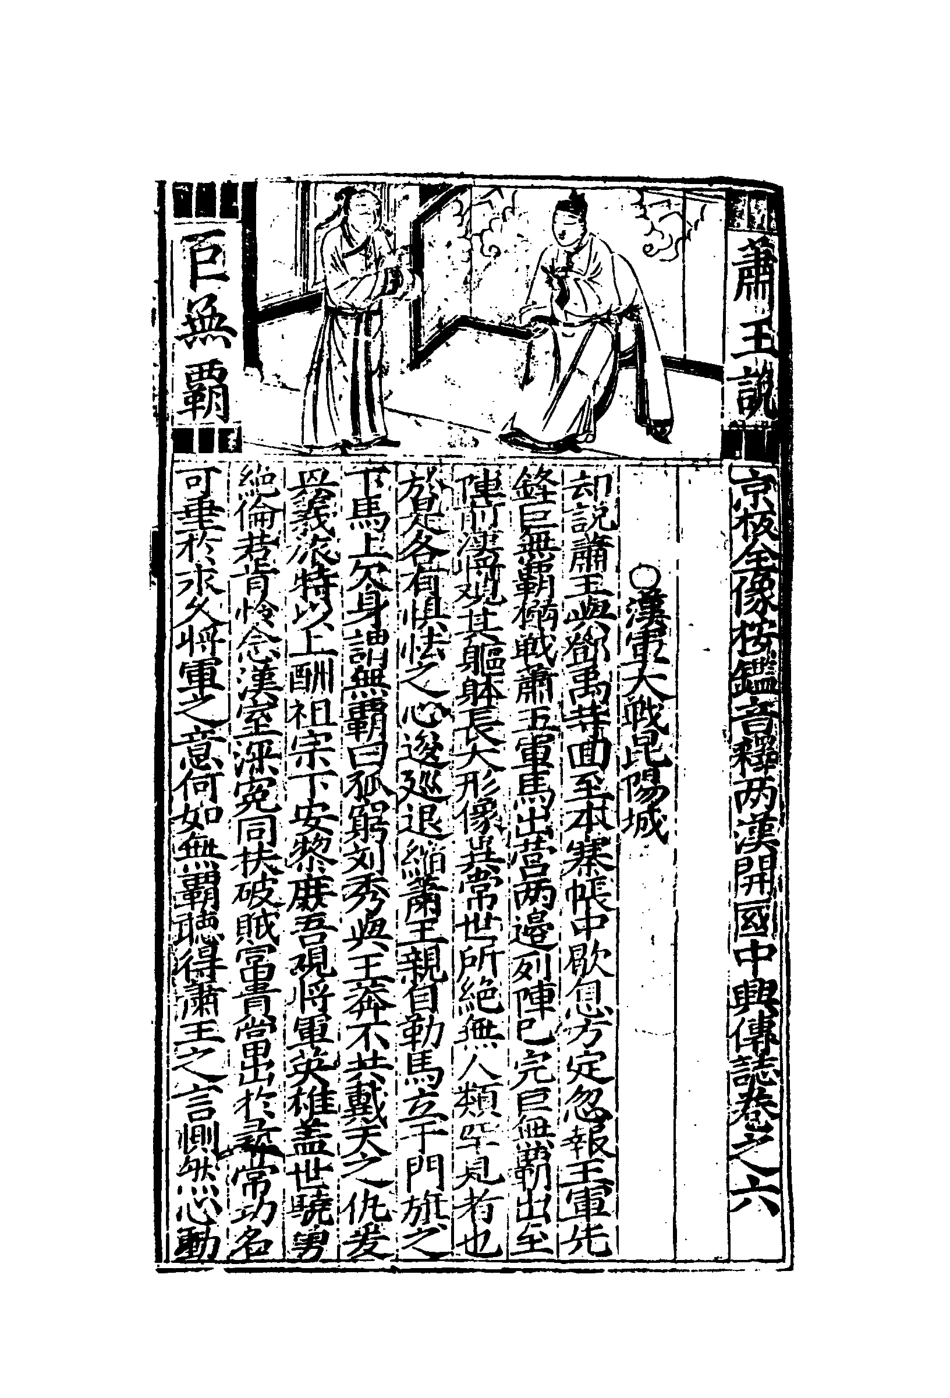 蕭王說
巨無霸
京板全像按鑑音釋两漢開國中興傳誌卷之六
○漢軍大戰昆陽城
却說蕭王與鄧禹等囬至本寨帳中歇息方定忽報王軍先
鋒巨無霸搦戰蕭王軍馬出营两邉列陣已完巨無霸出至
陣前漢將观其軀躰長大形像異常世所絶無人類罕見者也
於是各有惧怯之心逡廵退縮蕭王親自勒馬立于門旗之
下馬上欠身謂無霸曰孤窮刘秀與王莽不共戴天之仇爰
興義旅特以上酬祖宗下安黎庻吾观將軍英雄盖世驍勇
絶倫若肯怜念漢室深寃同扶破贼富貴當出於尋常功名
可垂於永久將軍之意何如無霸聴得蕭王之言惻然心動